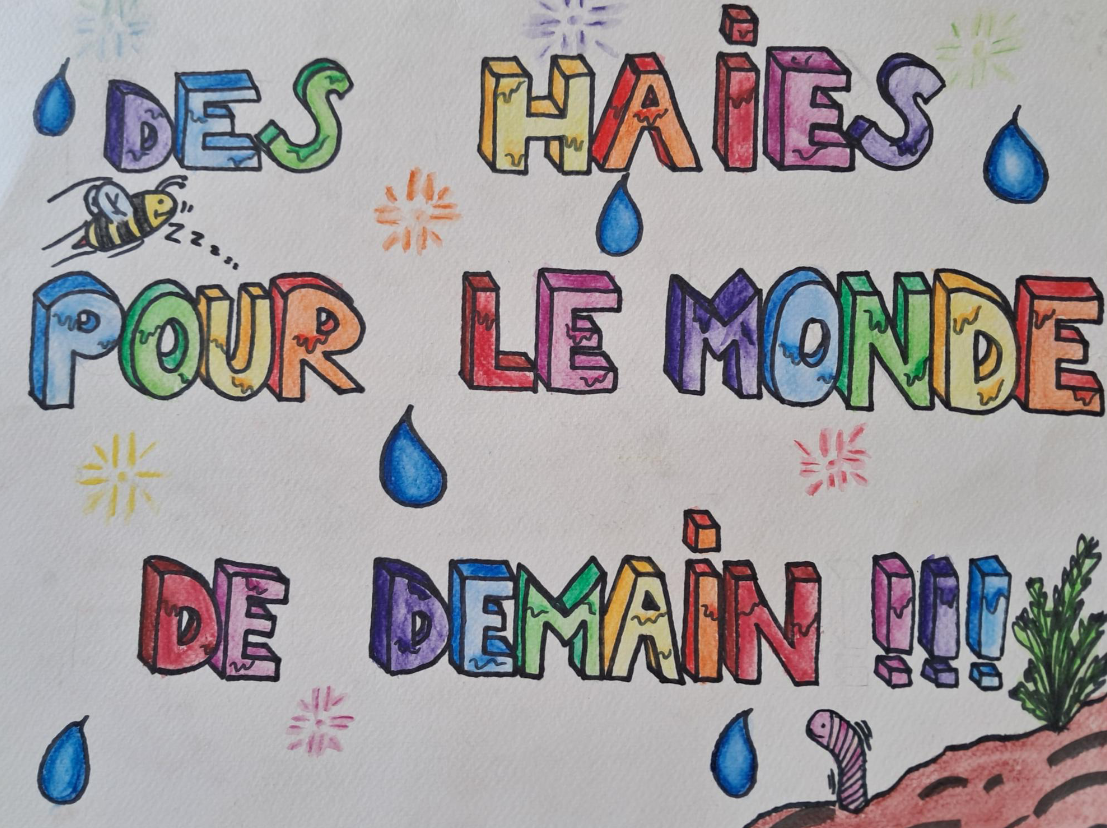 DES HAiES
Zzz...
POUR LE MONDE
DE DEMAiN !!!